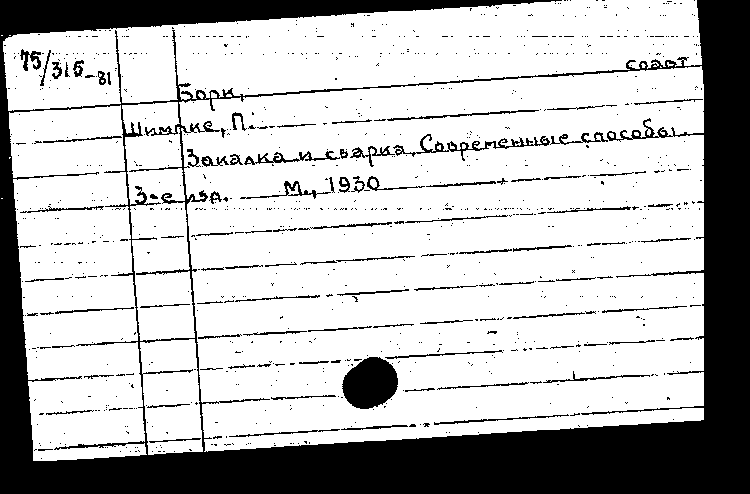 75/315-81
Борк, соавт
Шимпке, П.
Закалка и сварка. Современные способы.
3-е изд. М., 1930